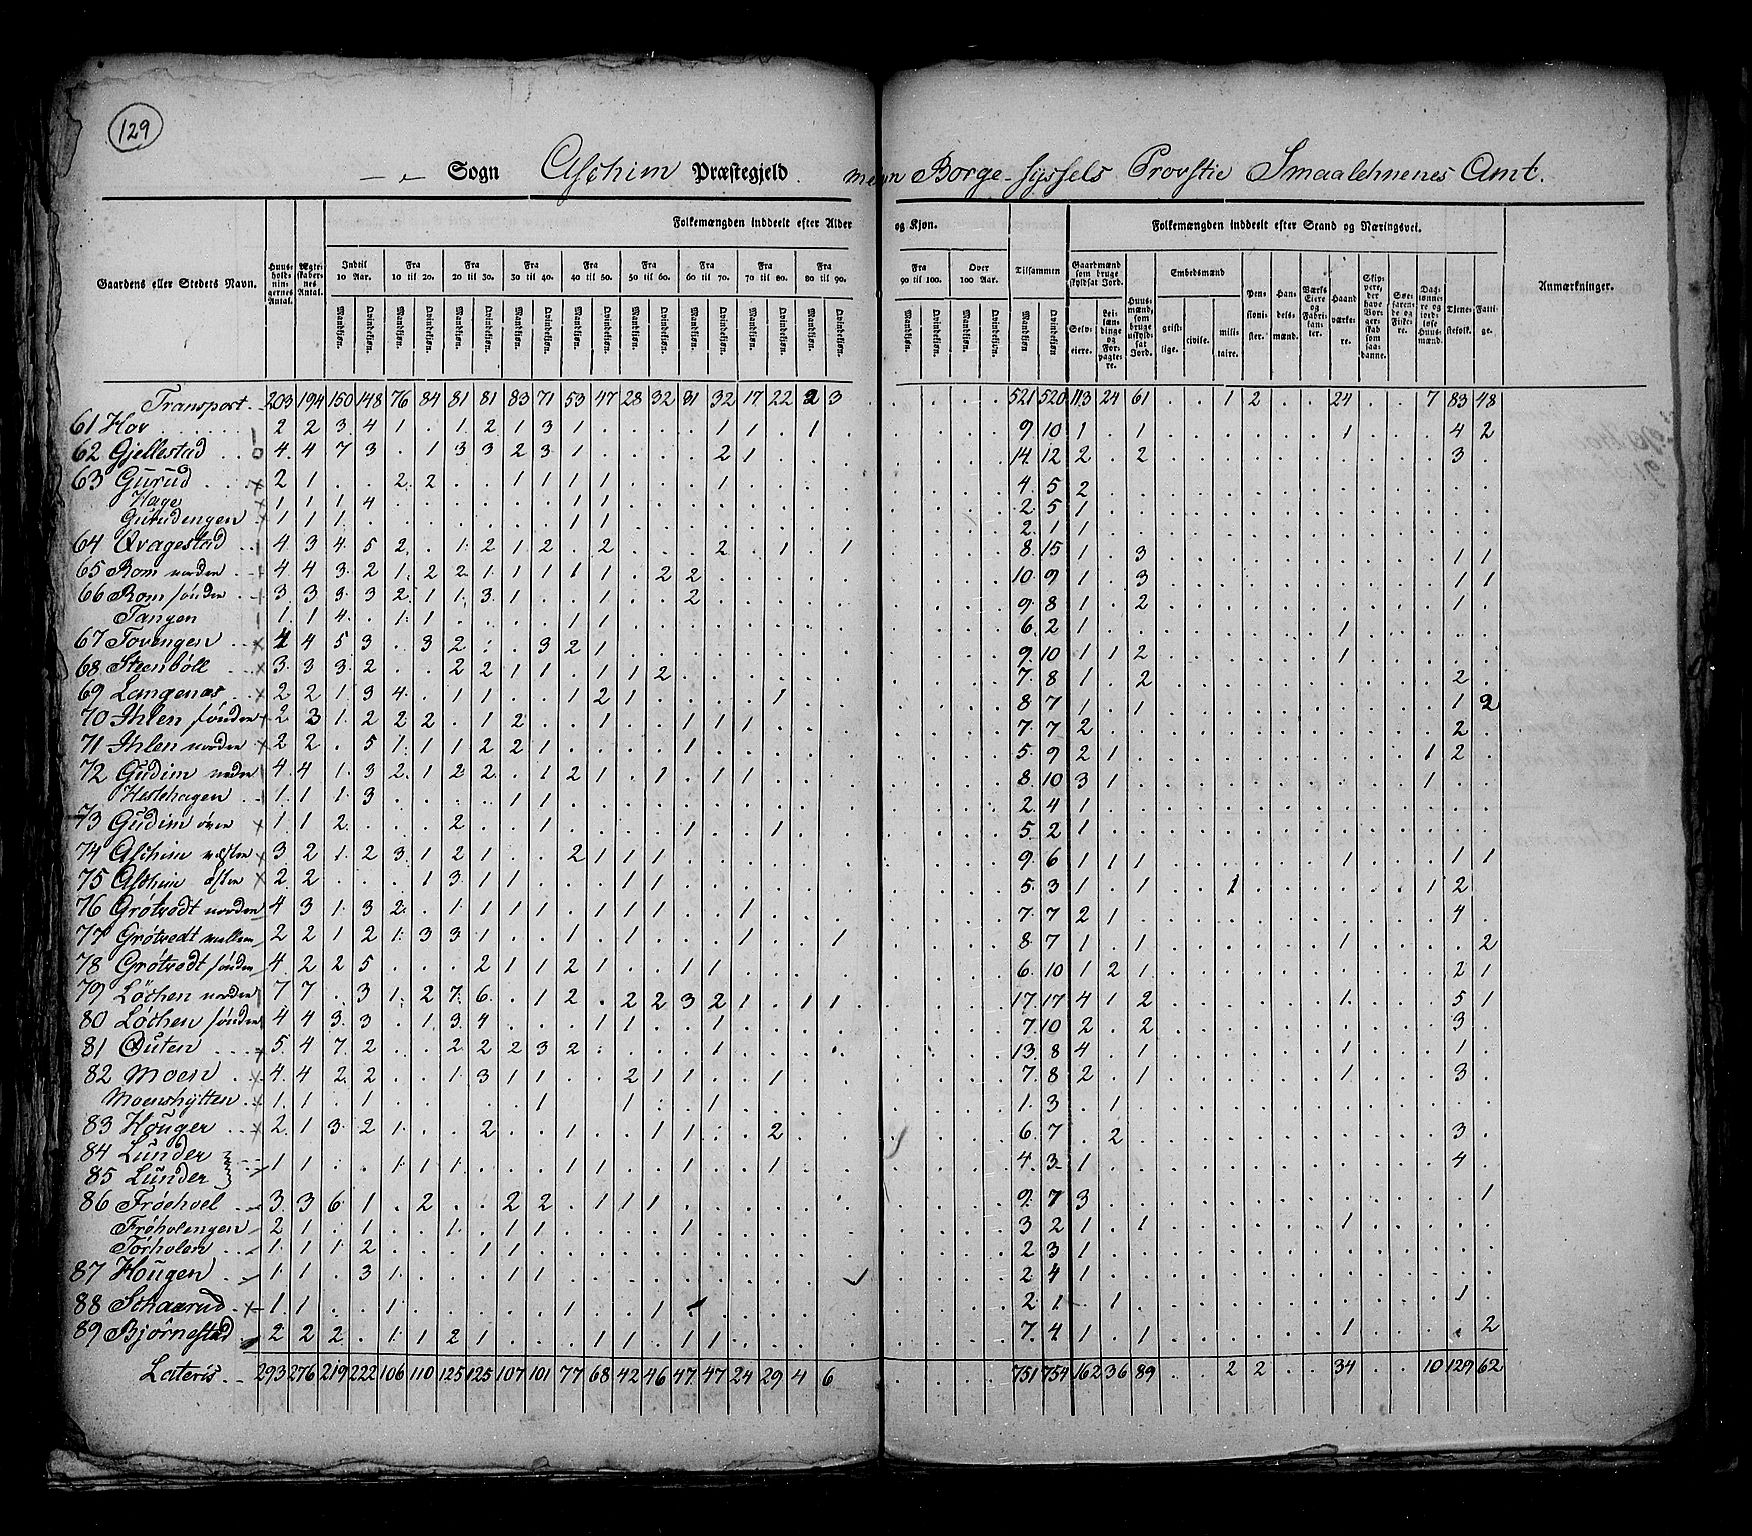 129
Sogn Aschim Præstegjeld Borge-Syssels Provstie Smaalehnenes Amt.
Gaardens eller Stedets Navn.
Folkemængden inddeelt efter Alder og Kjøn.
Folkemængden inddeelt efter Stand og Næringsvei.
Anmærkninger.
Indtil 10 Aar. Fra 10 til 20. Fra 20 til 30. Fra 30 til 40. Fra 40 til 50. Fra 50 til 60. Fra 60 til 70. Fra 70 til 80. Fra 80 til 90. Fra 90 til 100. Over 100 Aar. Tilsammen
Embedsmænd
Mandkjøn. Qvindekjøn.
Transport 203 194 150 148 76 84 81 81 83 71 53 47 28 32 31 32 17 22 2 3 521 520 113 24 61 1 2 24 7 83 48
61 Hov 2 2 3 4 1 . 1 2 1 3 1 . . . . 1 1 . 1 . 9 10 1 . 1 1 4 2
62 Gjellestad 4 4 7 3 . 1 3 3 2 3 1 . . . . 2 1 14 12 2 . 2 3
63 Gurud 2 1 . . 2 2 . . 1 1 1 1 . . . 1 4 5 2
Hage 1 1 1 4 1 1 2 5 1
Gurudengen 1 1 1 1 1 2 1 1
64 Qvagestad 4 3 4 5 2 . 1 2 1 2 . 2 . . . 2 . 1 . 1 8 15 1 . 3 1 1
65 Rom norden 4 4 3 2 1 2 2 1 1 1 1 1 . 2 2 10 9 1 . 3 1 1
66 Rom sønden 3 3 3 3 2 1 1 3 1 . . 1 . . 2 9 8 1 . 2 1
Tangen 1 1 4 . 1 1 . . . . 1 1 6 2 1 1
67 Tovengen 4 4 5 3 . 3 2 . . 3 2 1 9 10 1 1 2 1
68 Steenbøll 3 3 3 2 . . 2 2 1 1 . 1 1 2 7 8 1 . 2 2
69 Langenæs 2 2 1 3 4 . 1 1 . . 1 2 1 . . . . 1 8 7 1 . 1 1 2
70 Ihlen sønden 2 3 1 2 2 2 . 1 2 . . 1 . . 1 1 1 7 7 2 2
71 Ihlen norden 2 2 . 5 1 1 1 2 2 1 . . . . 1 5 9 2 1 1 2
72 Gudim neder 4 4 1 3 2 1 2 2 . 1 2 1 . 1 . 1 1 8 10 3 1 1
Heslehagen 1 1 1 3 1 1 2 4 1
73 Gudim øvre 1 1 2 . . . 2 . . 1 . . . . 1 . . 1 5 2 1
74 Aschim vesten 3 2 1 2 3 1 2 1 . . 2 1 1 1 9 6 1 1 1 1 1 1
75 Aschim østen 2 2 . . . 1 3 1 1 . . . 1 1 5 3 1 . 1 1 1 2
76 Grøtvedt norden 4 3 1 3 2 . 1 1 1 1 . 1 1 1 . . 1 7 7 2 1 4
77 Grøtvedt mellem 2 2 1 2 1 3 3 1 . . 1 . 1 . . . 1 . . 1 8 7 1 . 1 1 2
78 Grøtvedt sønden 4 2 2 5 . . . 2 1 1 2 1 . . 1 1 6 10 1 2 1 2 1
79 Løchen norden 7 7 . 3 1 2 7 6 . 1 2 . 2 2 3 2 1 . 1 1 17 17 4 1 2 1 5 1
80 Løchen sønden 4 4 3 3 . 1 3 4 . . . 1 1 . . 1 7 10 2 . 2 3
81 Outen 5 4 7 2 . . 2 2 2 3 2 . . . . 1 13 8 4 . 1 1 1
82 Moen 4 4 2 2 . . 1 3 1 1 . . 2 1 1 . . 1 7 8 2 . 1 1 3
Moenshytten 1 1 . 1 1 1 1 1 3 . 1
83 Houger 2 1 3 2 1 . . 2 . . 1 . . 1 1 . . 2 6 7 . 2 3
84 Lunder
85 Lunder 1 1 . . 1 1 1 . . . 1 1 . . 1 . . 1 4 3 1 4
86 Frøehoel 3 3 6 1 . 2 . . 2 2 . 1 1 1 9 7 3 1
Frøholengen 2 1 . 1 . . 1 . 1 1 . . . . 1 3 2 1 . 1 1
Torholen 1 1 1 2 1 1 2 3 1
87 Hougen 1 1 . 3 1 . . . 1 1 2 4 1
88 Schaarud 1 1 . . 1 . . . . . 1 . . 1 2 1 . 1 1
89 Bjørnestad 2 2 2 . 1 1 2 1 . . . 1 1 . 1 1 7 4 1 . 1 1 2
Lateris 293 276 219 222 106 110 125 125 107 101 77 68 42 46 47 47 24 29 4 6 751 754 162 36 89 2 2 34 10 129 62